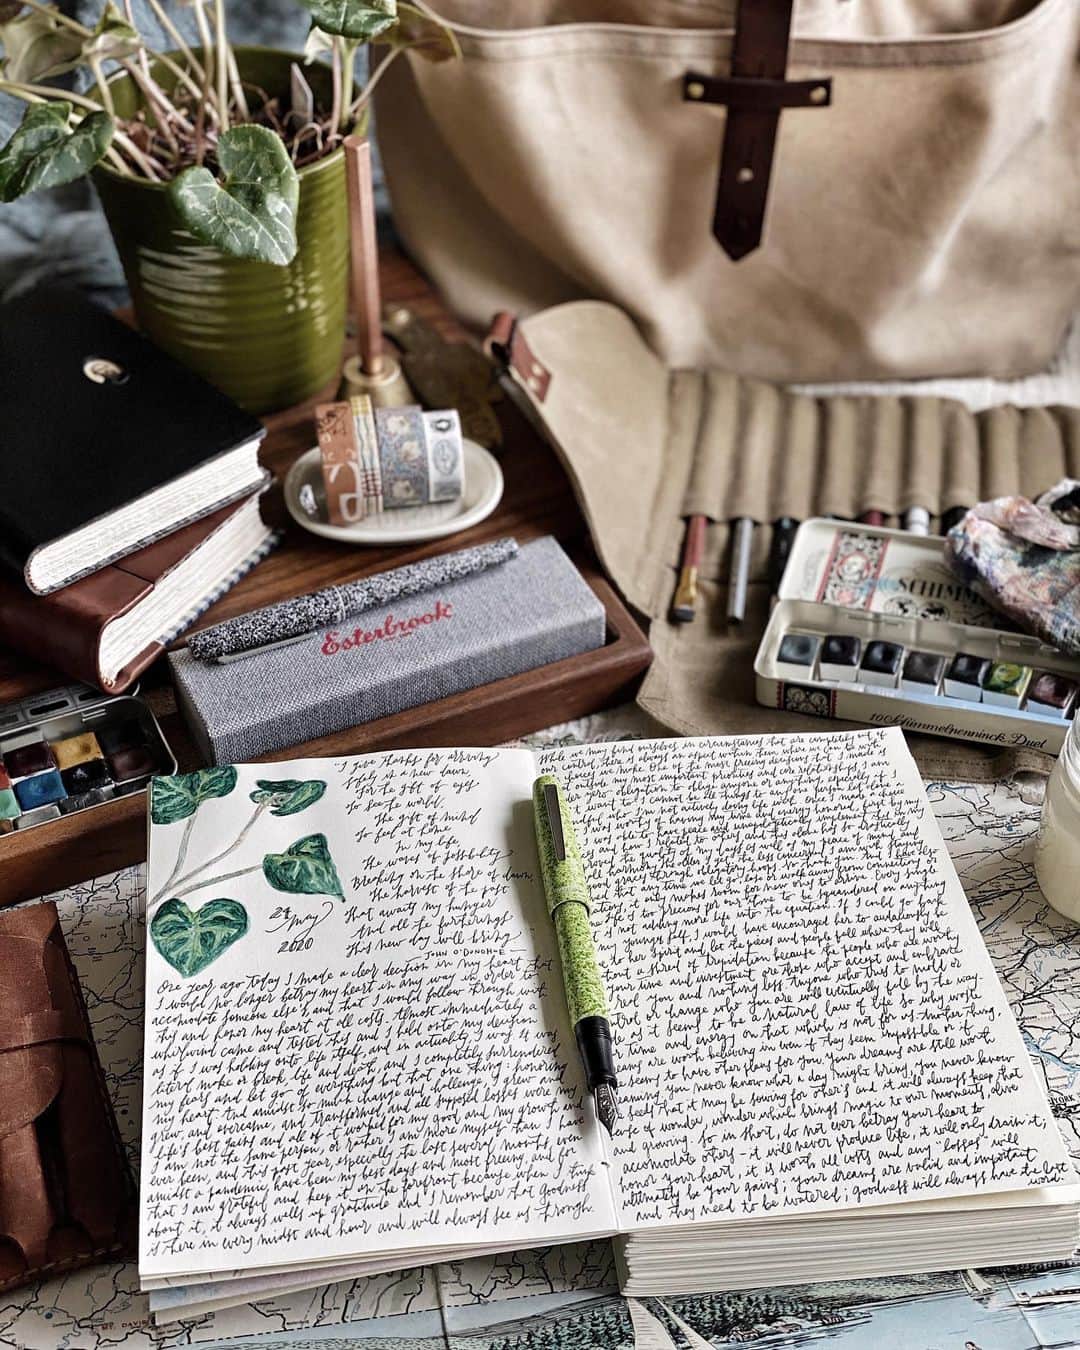 Esterbrook
SCHIMM
10 Schimmelnenninck Duet
I give thanks for arriving
safely in a new dawn,
for the gift of eyes
to see the world,
The gift of mind
to feel at home
In my life,
The waves of possibility
Breaking on the shore of dawn,
The harvest of the past
That awaits my hunger
And all the furtherings
This new day will bring
JOHN O'DONOHUE
24
May
2020
One year ago today I made a clear decision in my heart that
I would no longer betray my heart in any way in order to
accomodate someone else's, and that I would follow through with
this and honor my heart at all costs. Almost immediately a
whirlwind came and tested this and I held onto my decision
as if I was holding onto life itself, and in actuality, I was. It was
literal make or break, life and death, and I completely surrendered
my fears and let go of everything but that one thing: honoring
my heart. And amidst so much change and challenge, I grew and
grew, and overcame, and transformed, and all supposed losses were my
life's best gains and all of it worked for my good and my growth and
I am not the same person, or rather I am more myself than I have
ever been, and this past year, especially the last several months even
amidst a pandemic, have been my best days and most freeing, and for
that I am grateful and keep it in the forefront because when I think
about it, it always wells up gratitude and I remember that goodness
is there in every midst and hour and will always see us through.
While we may find ourselves in circumstances that are completely out of
our control, there is always an aspect within them where we can be with
the choices we make
outside your most important priorities and core relationships
zero obligation to oblige anyone or anything, especially if
want to. I cannot be all things to anyone person let alone
I was worthy of having my time and energy honored, first by my
able to have peace and
and how I related to others and this alone has so drastically
the quality of my days as well as my peace of mind and
all harmony. The older I get the less concerned I am with playing
good graces through obligatory hoops. No thank you. And I have also
that any time we let go, lose or walk away from connection or
it only makes room for new ones to arrive. Every single
life is too precious for our time to be squandered on anything
not adding more life into the equation. If I could go back
my younger self, I would have encouraged her to audaciously be
to her spirit and let the pieces and people fall where they will
without a shred of trepidation because the people who are worthy
your time and investment are those who accept and embrace
real you and nothing less. Anyone who tries to mold or
control or change who you are will eventually fall by the way
side as it seems to be a natural law of life so why waste
your time and energy on that which is not for us. Another thing,
dreams are worth believing in even if they seem impossible or if
seems to have other plans for you. Your dreams are still worth
dreaming. You never know what a day might bring, you never know
seeds that it may be sowing for others and it will always keep that
sense of wonder, wonder which brings magic to our moments, alive
and growing. So in short, do not ever betray your heart to
accomodate others - it will never produce life, it will only drain it;
honor your heart, it is worth all costs and any "losses" will
ultimately be your gains; your dreams are valid and important
and they need to be watered; goodness will always have the last
word.